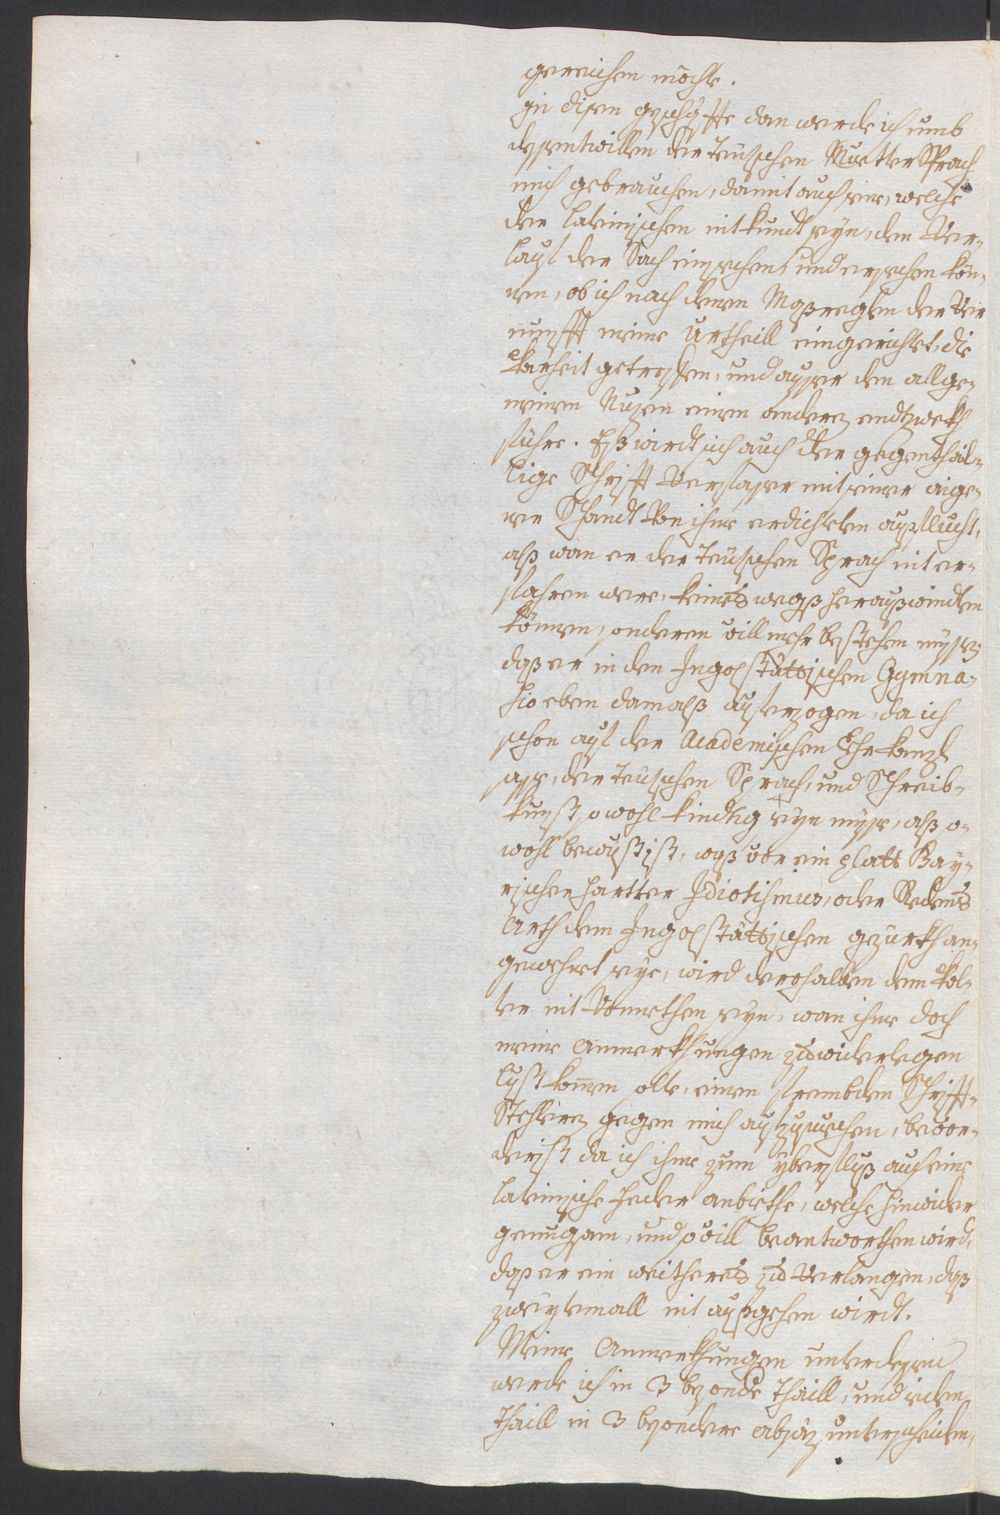 gereichen möchte.
In disen geschäffte dan werde ich umb
dessentwillen der Teütschen Muetter Sprach
mich gebrauchen, damit auch jene, welche
der lateinischen nit kundt seyn, den Ver-
lauf der Sach einsehen, und ersehen kön-
nen, ob ich nach denen Maßreglen der Ver
nunfft meine Urtheill eingerichtet, die
Warheit getroffen, und ausser dem allge-
meinen Nuzen einen anderen endtzweckh
führe. Eß wirdt sich auch der gegenthäl-
lige Schrifft Verfasser mit seiner aige-
ner Schandt von ihme erdichteten außflucht,
alß wan er der Teütschen Sprach nit er-
fahren were, keines wegß heraußwinden
können, sonderen vill mehr bestehen müssen
daß er in dem Ingolstättischen Gymna-
sio eben damalß auferzogen, da ich
schon auf der Academischen Lehr Canzl
sasse, der Teütschen Sprach, und Schreib-
kunst sowohl kündtig seyn müsse, alß so-
wohl bewust ist, waß vor ein platt Bay-
rischer hartter Idiotismus, oder Redens
Arth dem Ingolstättischen gezürkh an-
gewehnt seye, wird derohalben dem
nit Vonnethen seyn, wan ihme doch
meine Anmerkhungen zu widerlegen
lust kommen solte, einen frembden Schrifft-
Stehleren gegen mich aufzusuechen, bevor-
derist da ich ihme zum yberfluß auch eine
lateinische Feder anbiethe, welche hinwider
genugsam, und so vill beantworthen wird,
daß er ein weitheres zu Verlangen, daß
zweytemall nit außgehen wirdt.
Meine Anmerkhungen unterdessen
werde ich in 3 besondere Thaill, und ieden
Thaill in 3 besondere absäz unterscheiden,